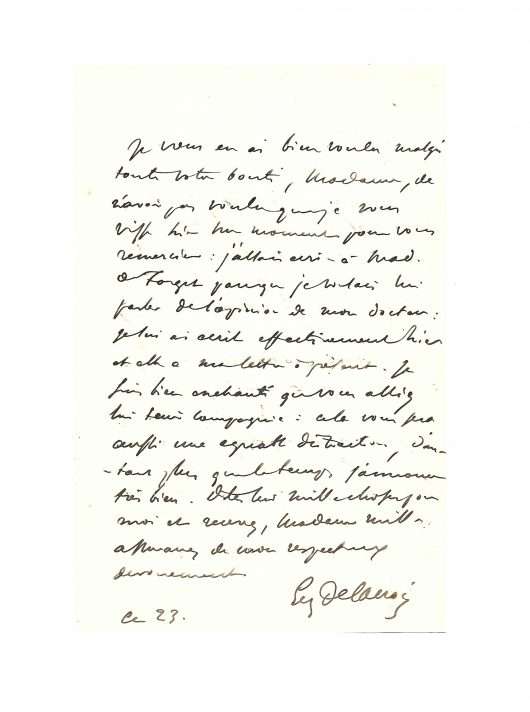 Je vous en ai bien voulu malgré
toute votre bonté, Madame, de
n'avoir pas voulu que je vous
visse hier un moment pour vous
remercier : j'allais à Mad.
de Forget parce que je voulais lui
parler de l'opinion de mon docteur :
je lui ai écrit effectivement hier
et elle a ma lettre à présent. Je
suis bien enchanté que vous alliez
lui tenir compagnie : cela vous fera
aussi une agréable distraction, d'au-
-tant plus que le temps s'annonce
très bien. Dites lui mille choses pour
moi et recevez, Madame mille
assurances de mon respectueux
dévouement
Eug Delacroix
Ce 23.